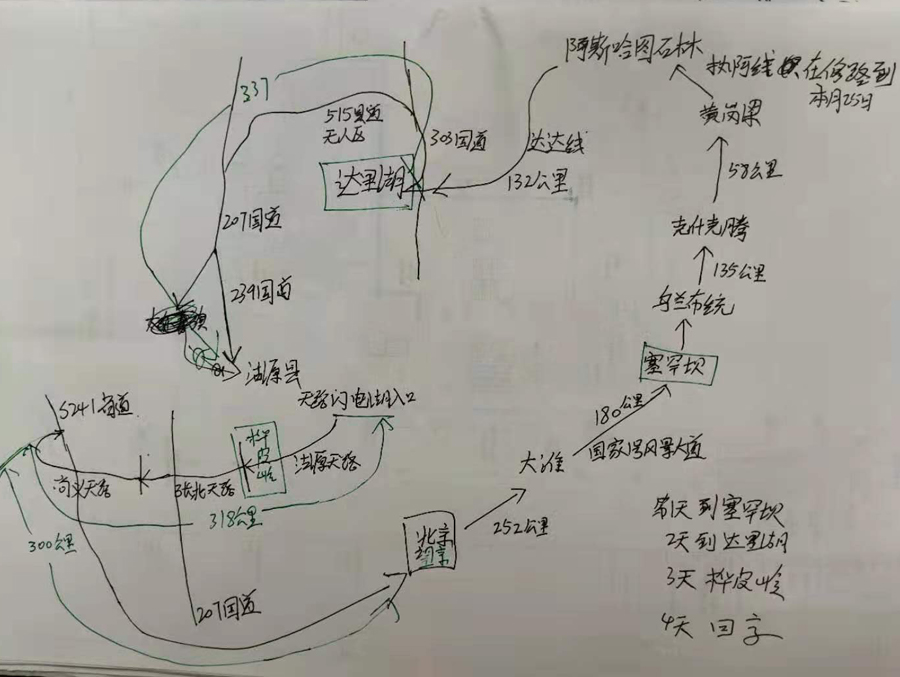 阿斯哈图石林
热阿线 在修路到
本月25日
337
515县道
无人区
303国道
达达线
132公里
黄岗梁
58公里
达里湖
克什克腾
207国道
135公里
239国道
乌兰布统
沽源县
塞罕坝
180公里
S241省道
天路闪电湖入口
桦皮岭
沽源天路
大滩
国家1号风景大道
尚义天路
张北天路
318公里
300公里
北京
252公里
第1天到塞罕坝
2天到达里湖
3天 桦皮岭
4天 回京
207国道